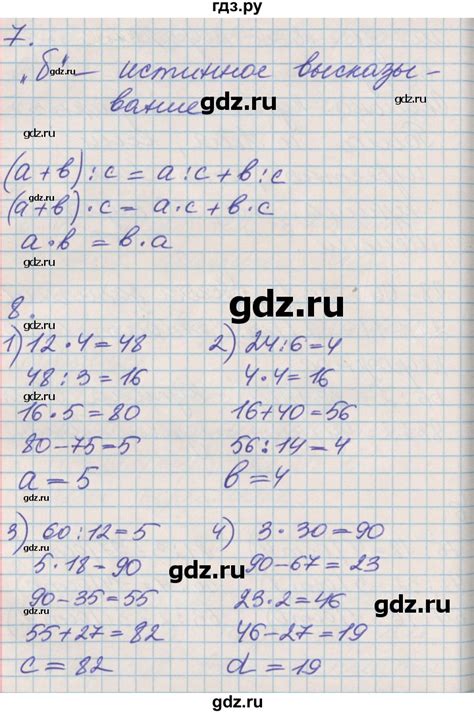 гдз.ру
7.
„б" — истинное высказы-
вание
gdz.ru
gdz.ru
(а+в):с = а:с+в:с
gdz.ru
(а+в)·с = а·с+в·с
а·в = в·а
gdz.ru
8.
1) 12·4=48
48:3=16
gdz.ru
16·5=80
80-75=5
gdz.ru
а = 5
2) 24:6=4
4·4=16
gdz.ru
16+40=56
56:14=4
в=4
gdz.ru
3) 60:12=5
5·18=90
90-35=55
gdz.ru
55+27=82
с = 82
4) 3·30=90
gdz.ru
90-67=23
23·2=46
46-27=19
gdz.ru
d = 19
gdz.ru